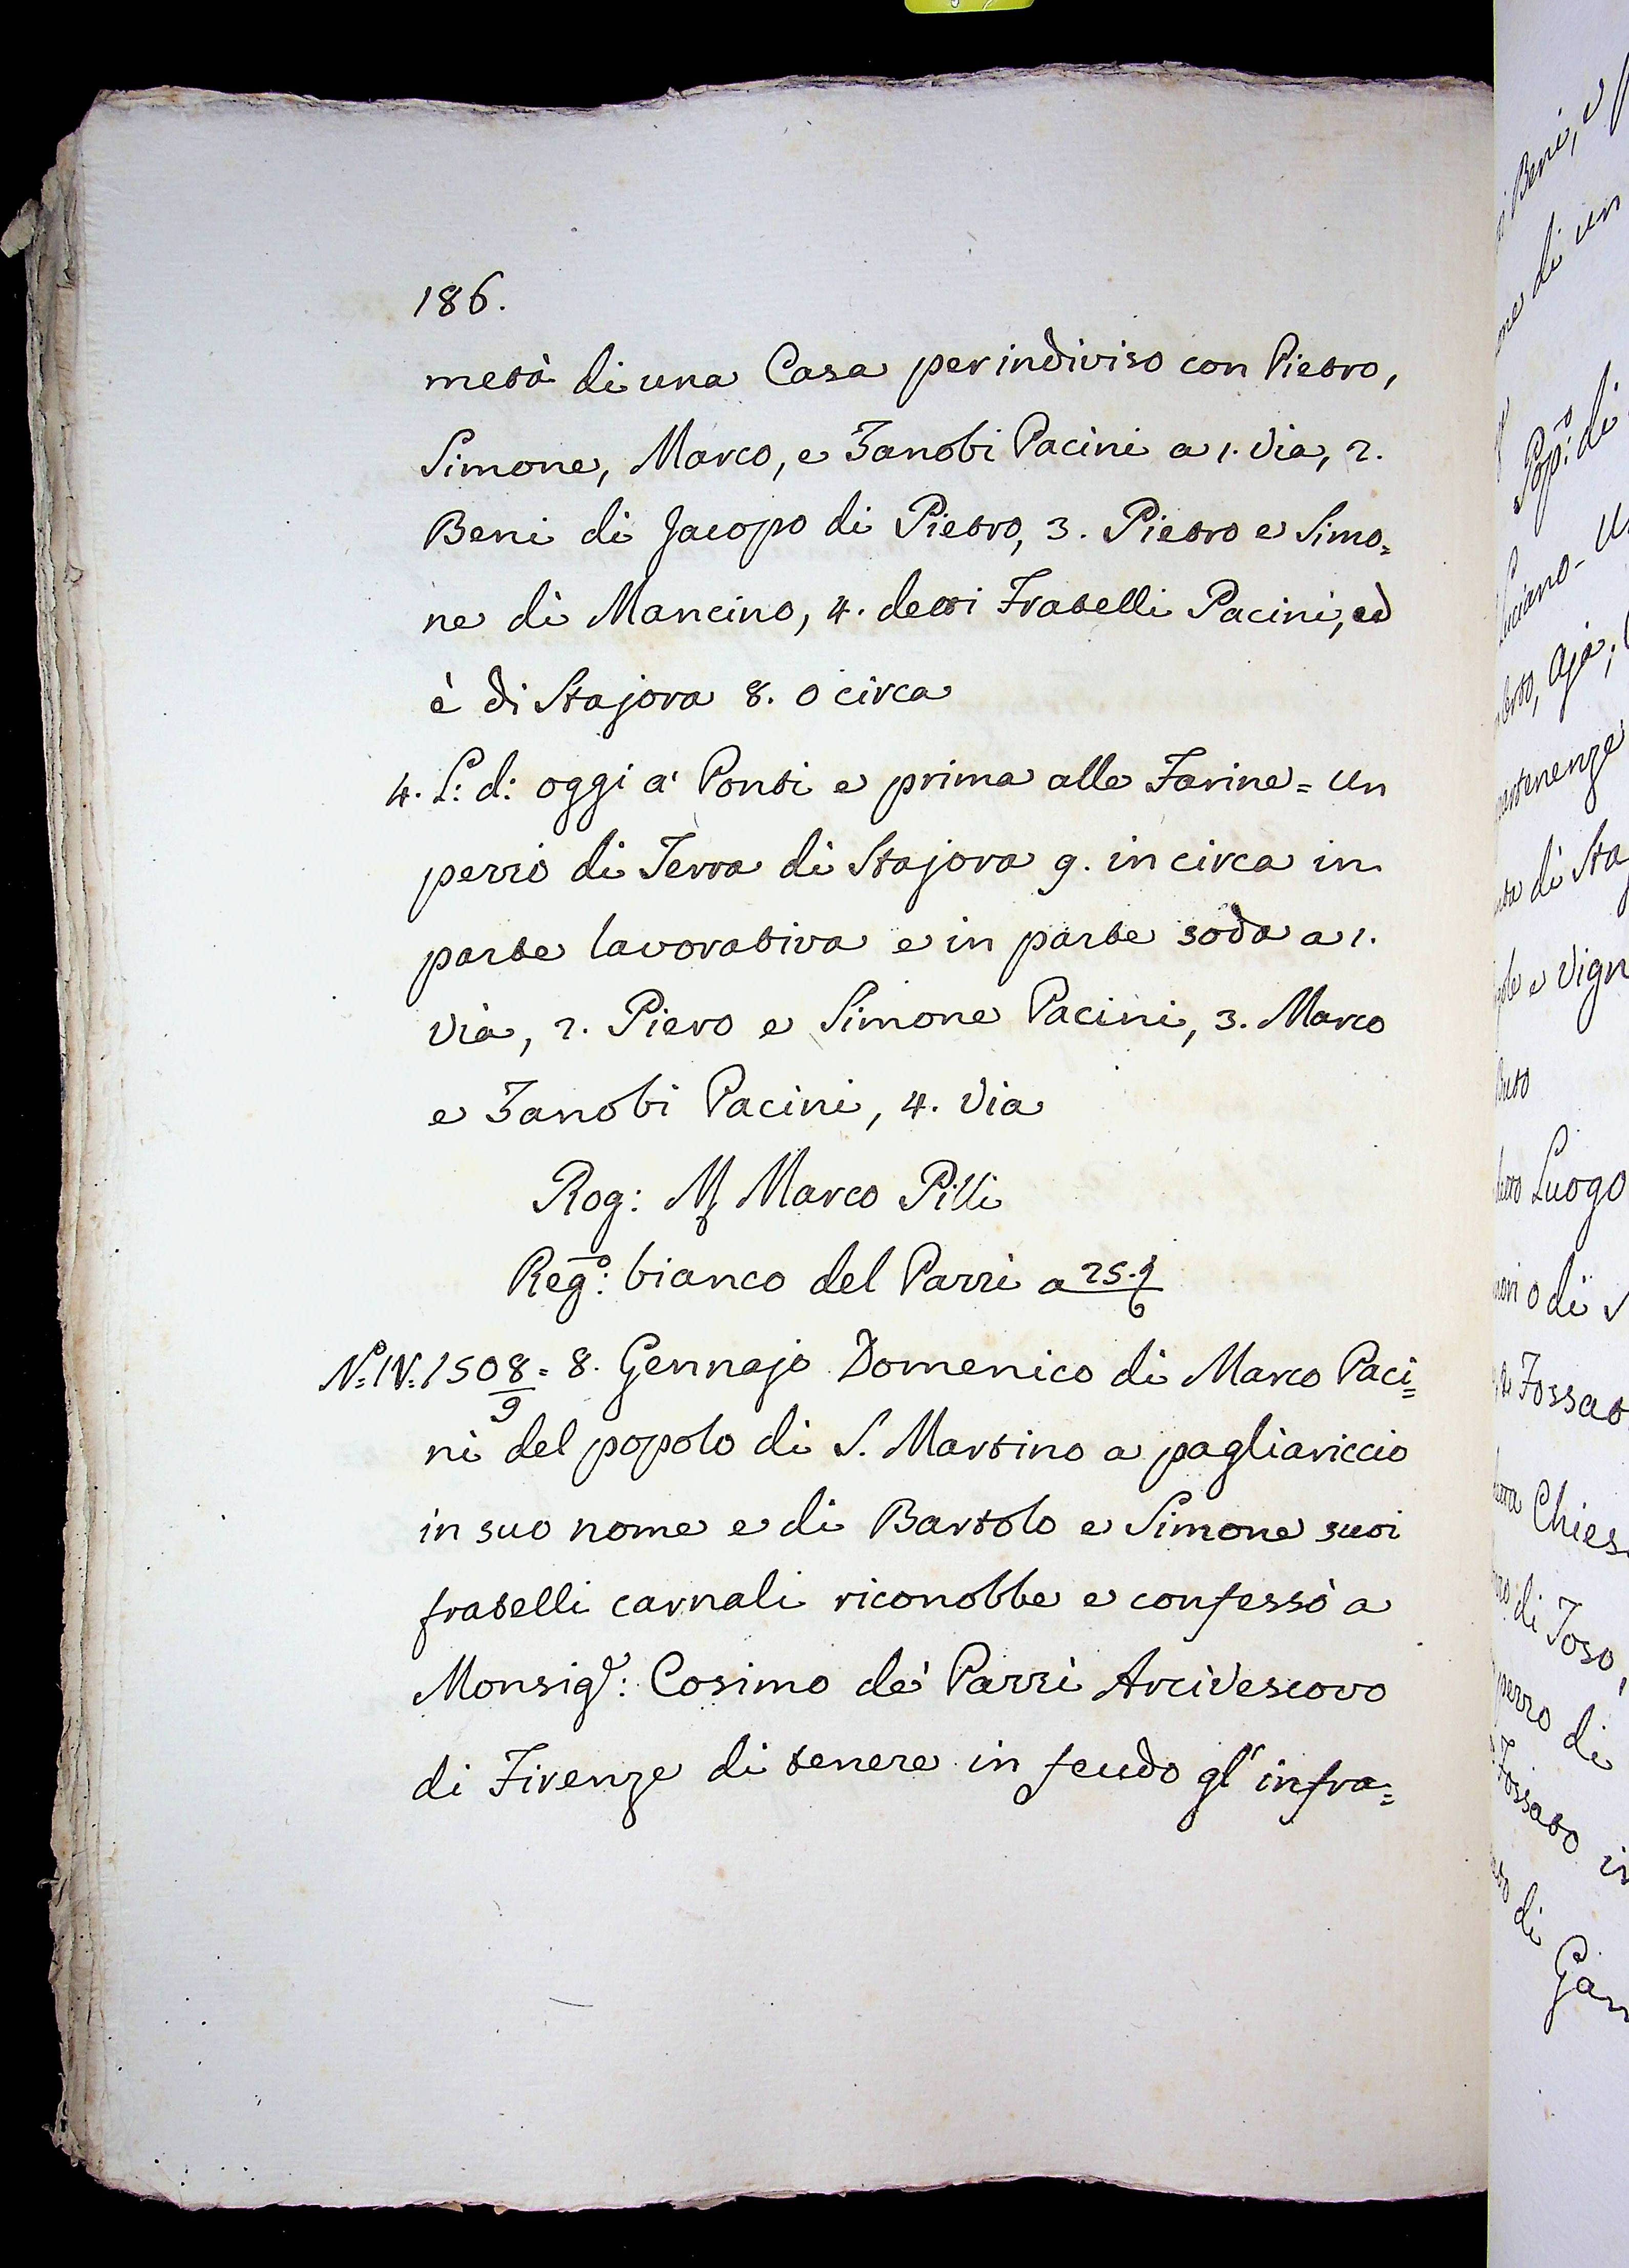 186.
metà di una Casa per indiviso con Pietro,
Simone, Marco, e Zanobi Pacini a 1. Via, 2.
Beni di Jacopo di Pietro, 3. Pietro e Simo=
ne di Mancino, 4. detti Fratelli Pacini, ed
è di Stajora 8. o circa
4. L: d: oggi a' Ponti e prima alle Farine = Un
pezzo di Terra di Stajora 9. in circa in
parte lavorativa e in parte soda a 1.
Via, 2. Piero e Simone Pacini, 3. Marco
e Zanobi Pacini, 4. Via
Rog: Marco Pilli
Regº: bianco del Pazzi a 25.
Nº: IV. 1508/9 = 8. Gennajo Domenico di Marco Paci=
ni del popolo di S. Martino a pagliariccio
in suo nome e di Bartolo e Simone suoi
fratelli carnali riconobbe e confessò a
Monsigr: Cosimo de' Pazzi Arcivescovo
di Firenze di tenere in feudo gl'infra=
Beni,
di un
Popº: di
Luciano -
Aja,
di Sta
e Vign
Luogo
o di
Fossat
Chies
di Toso,
di
Fossato
di